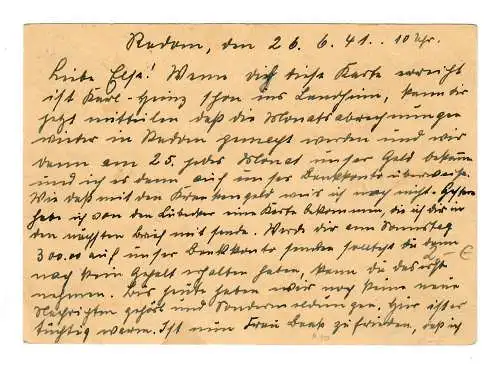 Radom, den 26.6.41. 10 Uhr.
Liebe Else! Wenn dich diese Karte erreicht
ist Karl-Heinz schon ins Landheim, kann dir
jetzt mitteilen daß die Monatsabrechnungen
wieder in Radom gemacht werden und wir
dann am 25. jedes Monat unser Geld bekommen
und ich es dann auf unser Bankkonto überweise.
Wie daß mit den Krankengeld weis ich noch nicht. Gestern
habe ich von den Lübecker eine Karte bekommen, die ich dir in
den nächsten Brief mit sende. Werde dir am Sonnstag
300.00 auf unser Bankkonto senden solltest du
noch kein Gehalt erhalten haben, kann du das erst
nehmen. Bis heute haben wir noch keine neue
Nachrichten gehört und Sondermeldungen. Hier ist es
tüchtig warm. Ist nun Frau zufrieden, daß ich
2,- €